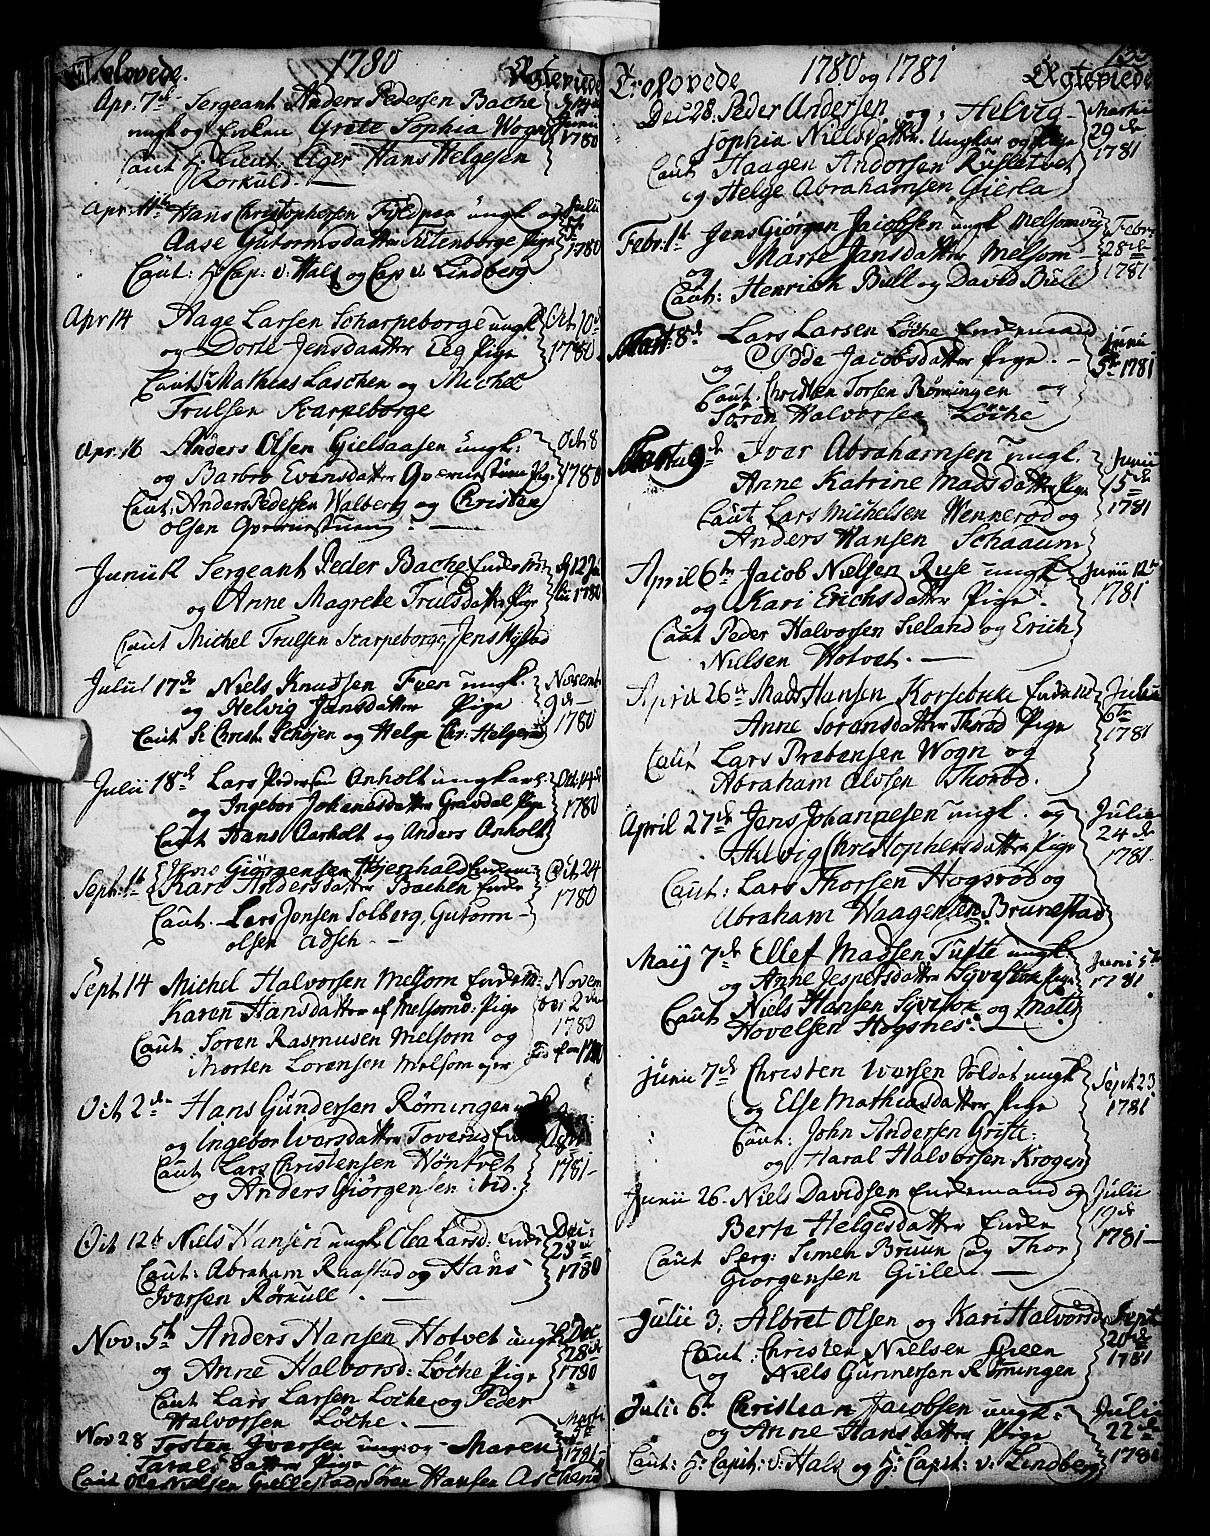 Trolovede. 1780 Ægteviede
Apr. 7de Sergeant Anders Pedersen Bache
ungk og Enken Grete Sophia Wogn Junii 1780
Caut H. Lieut: Eger Hans Helgesen
Rorkuld. —
Apr: 11te Hans Christophersen ungk og Julii
Aase Gutormsdatter Pige 1780
Caut: H. Cap: v: Hals og Cap v. Lindberg
Apr 14 Aage Larsen Scharpeborge ungk Oct 10de
og Dorte Jensdaatter Eeg Pige 1780
Caut Mathias Laschen og Michel
Trulsen Scarpeborge
Apr. 16 Anders Olsen Gielsaasen ungk: Oct 8
og Barbro Evensdatter Pige 1780
Caut: Anders Pedersen Walberg og Christen
Olsen
Junii Sergeant Peder Bache 12
og Anne Magrete Trulsdatter Pige 1780
Caut Michel Trulsen Scarpeborge, Jens
Julii 17de Niels Knudsen Feen ungk. Novemb
og Helvig Jansdatter Pige 9de
Caut Sr Christ. Schøjen og Helge Chr: Helgerød 1780
Julii 18de Lars Pedersen Anholt ungkarl Oct 14de
og Ingebor Johanesdatter Gravdal Pige 1780
Caut Hans Aarholt og Anders Anholt
Giørgensen Oct. 24
Sept: Kari Andersdatter Bachen Enke 1780
Caut. Lars Jonsen Solberg, Gutorm
Olsen Adsch. —
Sept. 14 Michel Halvorsen Melsom Novem
Karen Hansdatter af Melsom: Pige ber 2den
Caut Soren Rasmusen Melsom og 1780
Morten Lorensen Melsom
Oct 2de Hans Gundersen Rømingen
og Ingebor Iversdatter Toverud
Caut Lars Christensen Høntvet 1781
og Anders Giørgensen ibid.
Oct 12te Niels Hansen ungk Olea Larsd: Enke Dec:
Caut: Abraham Raastad og Hans 28de
Iversen Rørkull. — 1780
Nov. 5te Anders Hansen Hotvet ungk Dec
og Anne Halvorsd: Løche Pige 28de
Caut Lars Larsen Løche og Peder 1780
Halvorsen Løche. —
Nov 28 Torsten Iversen ung: og Maren
Taralsdatter Pige 1781
Caut Ole Nielsen Gullestad, Søren Hansen
Trolovede 1780 og 1781 Ægteviede
Dec 28. Peder Andersen og Helvig Martii
Sophia Nielsdatter. Ungkar og Pige 29de
Caut Haagen Andorsen Rusletvet 1781
og Helge Abrahamsen Gierla
Febr: 1te Jens Giørgen Jacobsen ungk Melsomvig Febr
og Marte Jansdatter Melsom 28de
Caut: Henrich Bull og David Bull 1781
Mart: 8de Lars Larsen Løche Enkemand Junii
og Edde Jacobsdatter Pige. — 5te 1781
Caut. Christen Torsen Rømingen og
Søren Halvorsen Løche
Martii 9de Ivar Abrahamsen ungk. Junii
Anne Katrine Madsdatter Pige 15de
Caut Lars Michelsen Wennerød og 1781
Anders Hansen Schaaum
April 6te Jacob Nielsen Ruse ungk Junii 12te
og Kari Erichsdatter Pige. 1781
Caut Peder Halvorsen Sieland og Erich
Nielsen Hotvet. —
April 26de Mads Hansen Korsebuke Julii
Anne Soransdatter Thorød Pige 6te
Caut Lars Prebensen Wogn og 1781
Abraham Olvsen Thorød.
April 27de Jens Johannesen ungk. og Julii
Helvig Christophersdatter Pige 24de
Caut: Lars Thorsen Hogsrød og 1781
Abraham Haagensen Brunestad
Maij 7de Ellef Madsen Tufte ungk Junii 5te
og Anne Jespersdatter Pige 1781
Caut Niels Hansen og Mats
Hovelsen Høgsnes.
Junii 7de Christen Iversen Soldat ungk Sept 23
og Else Mathiasdatter Pige 1781
Caut: John Andersen Grifte:
og Haral Halvorsen Krogen
Junii 26. Niels Davidsen Enkemand og Julii
Berte Helgesdatter Enke 19de
Caut Serg: Simen Bruun og Thor 1781
Giørgensen Guile —
Julii 3, Albret Olsen og Kari Halvorsd Sept
Caut: Christen Nielsen 20de
og Niels Gunnersen Rømingen 1781
Julii 6te Christian Jacobsen ungk: Julii
og Anne Hansdatter Pige 22de
Caut: H: Capit: v: Hals og H: Capit: v: Lindberg 1781